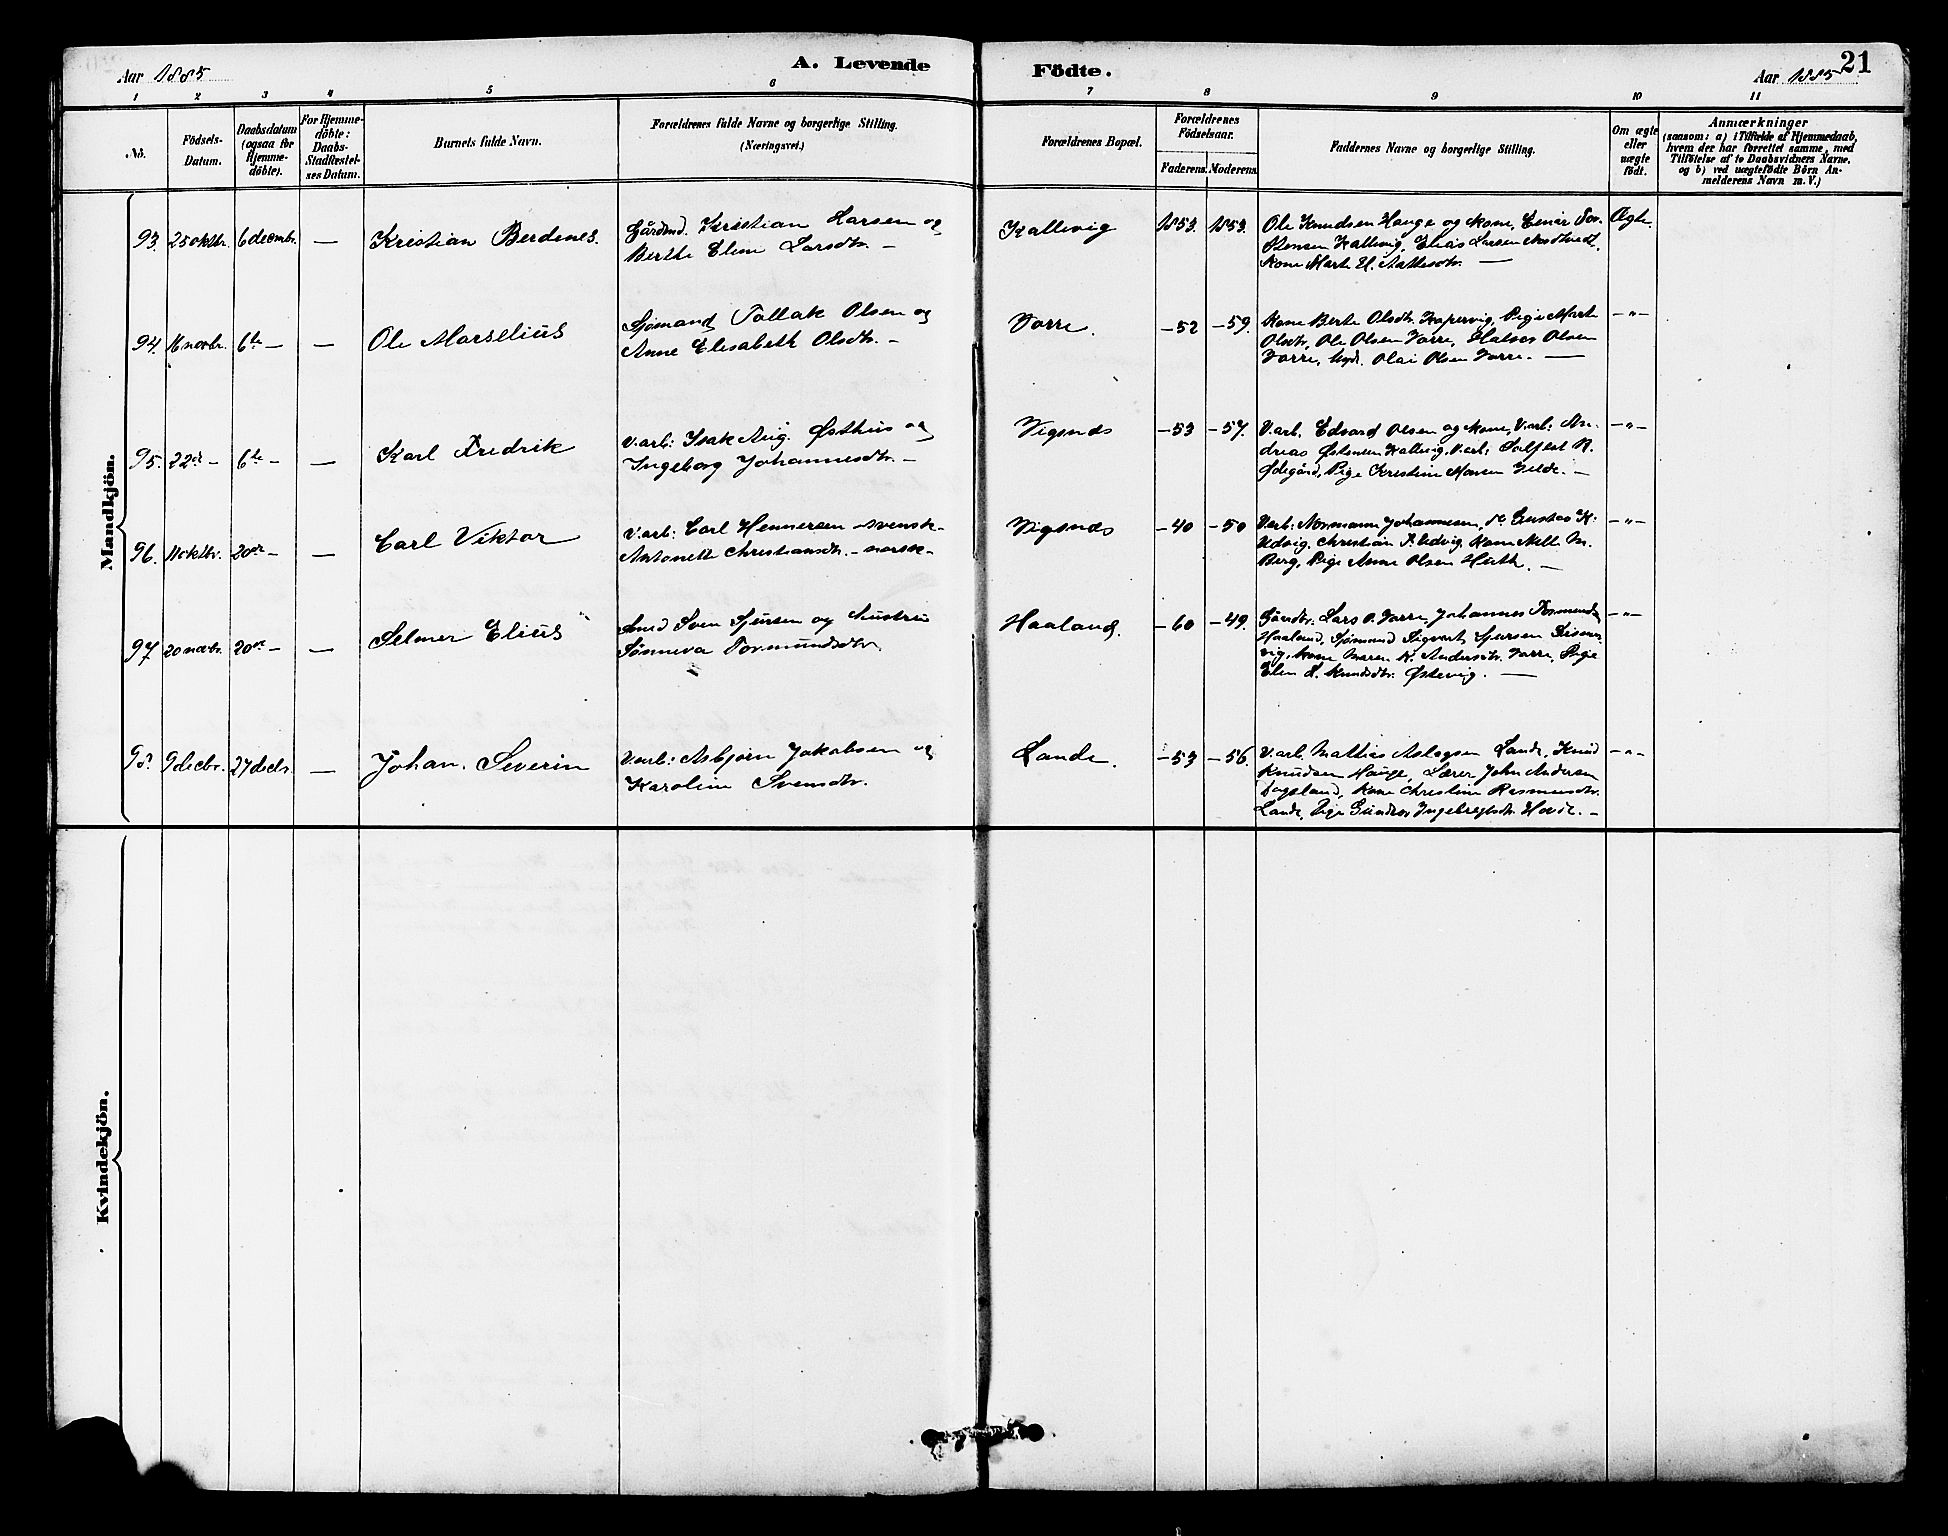 Aar 1885
A. Levende
Födte.
Aar 1885
21
1 2 3 4 5 6 7 8 9 10 11
No.
Födsels-
Datum.
Daabsdatum
(ogsaa for
Hjemme-
döbte).
For Hjemme-
döbte:
Daabs-
Stadfæstel-
ses Datum.
Barnets fulde Navn.
Forældrenes fulde Navne og borgerlige Stilling.
(Næringsvei.)
Forældrenes Bopæl.
Forældrenes
Födselsaar.
Faderens. Moderens.
Faddernes Navne og borgerlige Stilling.
Om ægte
eller
uægte
födt.
Anmærkninger
(saasom: a) i Tilfælde af Hjemmedaab,
hvem der har forrettet samme, med
Tilföielse af to Daabsvidners Navne.
og b) ved uægtefödte Börn An-
melderens Navn m. V.)
Mandkjön.
93. 25 oktbr. 6 decmbr. — Kristian Berdenes.
Gårdmd. Kristian Larsen og
Berthe Eline Larsdtr. —
Kallevig 1853. 1853.
Ole Knudsen Hauge og Kone, Einar Tor-
stensen Kallevig, Elias Larsen
Kone Marte El. Aattesdtr. —
Ægte.
94. 16 novbr. 6te — — Ole Marselius
Sjømand Tollak Olsen og
Anne Elisabeth Olsdtr. —
Vorre. —52 —59.
Kone Berte Olsdtr. Kopervig, Pige Marte
Olsdtr, Ole Olsen Vorre, Olsen
Vorre, Ugd. Olai Olsen Vorre. —
—"—
95. 22de — 6te — — Karl Fredrik
V.arb: Isak Aug. Østhus og
Ingeborg Johannesdtr. —
Vigsnes —53 —57.
V.arb. Edvard Olsen og Kone, V.arb: An-
dreas Østensen Kallevig, V.arb: R.
Ødegård, Pige Kristine Velde. —
—"—
96. 11 oktbr. 20de — — Carl Viktor
V.arb: Carl Hennersen —svensk—
Antonette Christiansdtr. —norsk—
Vigsnes —40 —50
V.arb: Normann Johannesen, Gustav K.
Udvig, Christian P. Udvig, Kone M.
Berg, Pige Anne Olsen —
—"—
97. 20 novbr. 20de — — Selmer Elius
Smd Sven Sjursen og Hustru
Sønneva Tormundsdtr.
Haaland. —60 —49.
Gårdbr. Lars O. Vorre, Johannes Tormunds
Haaland, Sjømand Sigvart Sjursen
vig, Kone Maren K. Andersdtr. Vorre, Pige
Elen K. Knudsdtr. Østevig. —
—"—
98. 9 decbr. 27 decbr. — Johan Severin
V.arb: Asbjørn Jakobsen og
Karoline Svensdtr.
Lande. —53 —56.
V.arb. Mathias Aslagsen Lande, Knud
Knudsen Hauge, Lærer John Andersen
Kone Christine Rasmusdtr.
Lande, Pige Ingebregtsdtr. —
—"—
Kvindekjön.